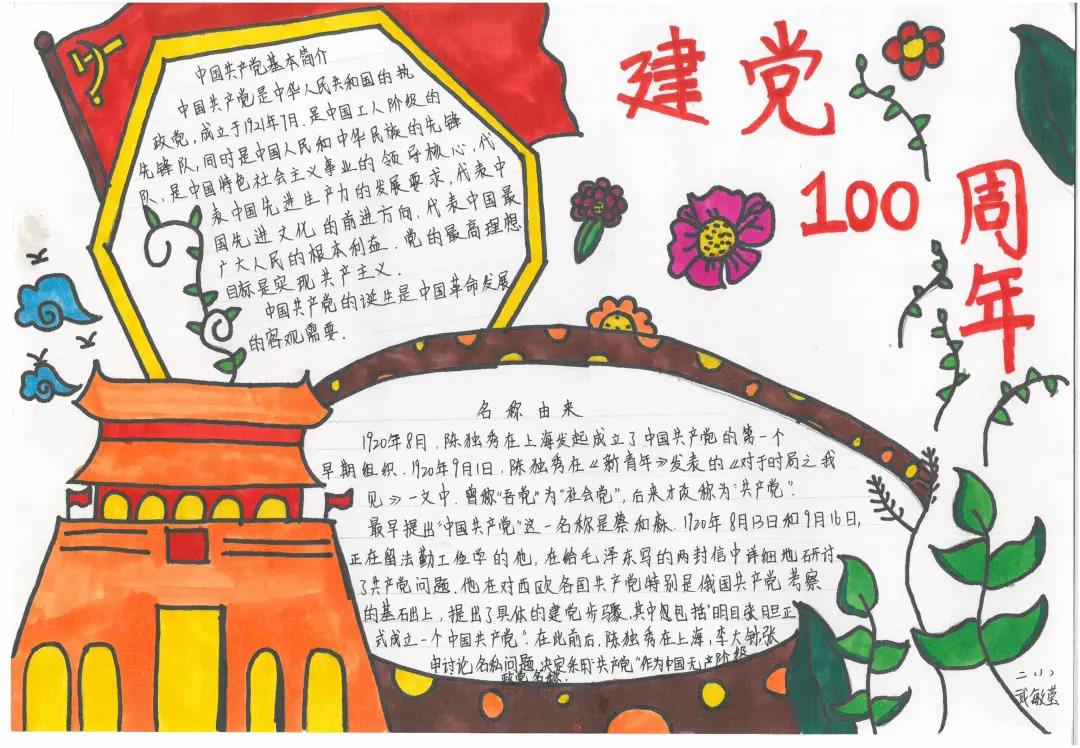 建党
100周年
中国共产党基本简介
中国共产党是中华人民共和国的执
政党,成立于1921年7月.是中国工人阶级的
先锋队,同时是中国人民和中华民族的先锋
队,是中国特色社会主义事业的领导核心,代
表中国先进生产力的发展要求,代表中
国先进文化的前进方向,代表中国最
广大人民的根本利益.党的最高理想
目标是实现共产主义.
中国共产党的诞生是中国革命发展
的客观需要.
名称由来
1920年8月,陈独秀在上海发起成立了中国共产党的第一个
早期组织.1920年9月1日,陈独秀在《新青年》发表的《对于时局之我
见》一文中.曾称"吾党"为"社会党",后来才改称为"共产党".
最早提出"中国共产党"这一名称是蔡和森.1920年8月13日和9月16日,
正在留法勤工俭学的他,在给毛泽东写的两封信中详细地研讨
了共产党问题.他在对西欧各国共产党特别是俄国共产党考察
的基础上,提出了具体的建党步骤,其中包括"明目张胆正
式成立一个中国共产党".在此前后,陈独秀在上海,李大钊,张
申讨论名称问题,决定采用"共产党"作为中国无产阶级
政党名称.
二(1)
武敏莹